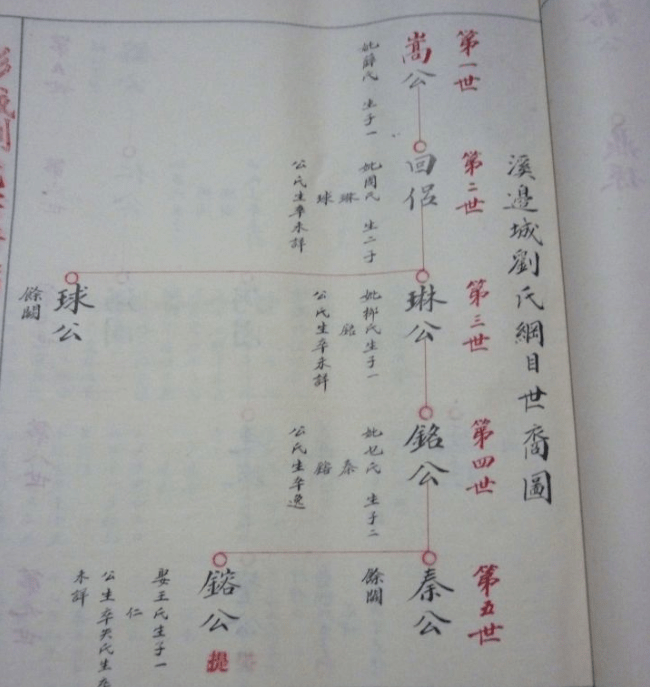 溪邊城劉氏綱目世裔圖
第一世
嵩公
妣薛氏 生子一
第二世
回侶
妣周氏 生二子
琳
球
公氏生卒未詳
第三世
琳公
妣鄉氏生子一
銘
公氏生卒未詳
球公
餘闕
第四世
銘公
妣尤氏 生子二
秦
鎔
公氏生卒逸
第五世
秦公
餘闕
鎔公
提
娶王氏生子一
仁
公生卒失氏生卒
未詳